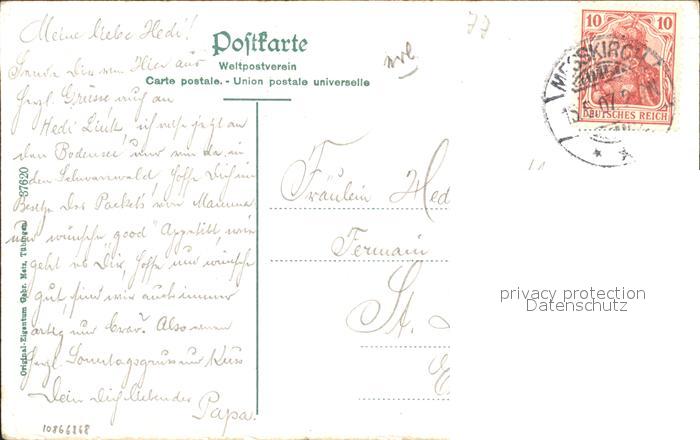 Meine liebe Hedi!
Sende Dir von Hier aus
herzl. Grüsse, auch an
Hedi Zink, ich reise jetzt an
den Bodensee und von da in
den Schwarzwald, hoffe Dich im
Besitze des Packets von Mamma
und wünsche "good" Appetitt, wie
geht es Dir, hoffe und wünsche
gut, sind wir auch immer
artig und brav? Also einen
herzl. Sonntagsgruss und Kuss
Dein Dich liebender
Papa.
Postkarte
Weltpostverein
Carte postale. - Union postale universelle
77
Fräulein Hed
St.
10
10
DEUTSCHES REICH
MESSKIRCH
privacy protection
Datenschutz
Original-Eigentum Gebr. Metz, Tübingen
37620
10866868